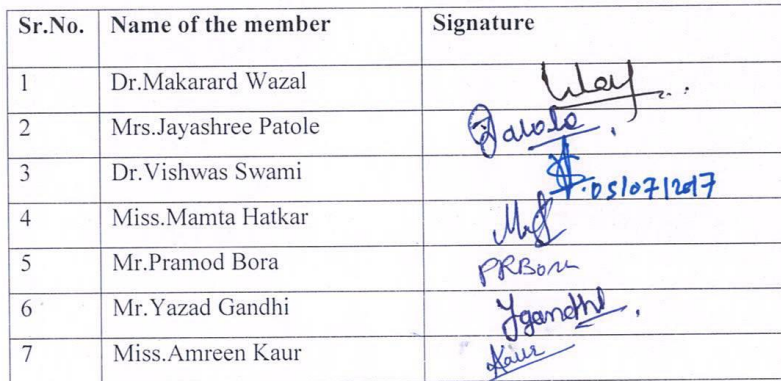 Sr.No. Name of the member Signature
1 Dr.Makarard Wazal
2 Mrs.Jayashree Patole Patole
3 Dr.Vishwas Swami 05/07/2017
4 Miss.Mamta Hatkar
5 Mr.Pramod Bora PRBora
6 Mr.Yazad Gandhi Ygandhi
7 Miss.Amreen Kaur Kaur